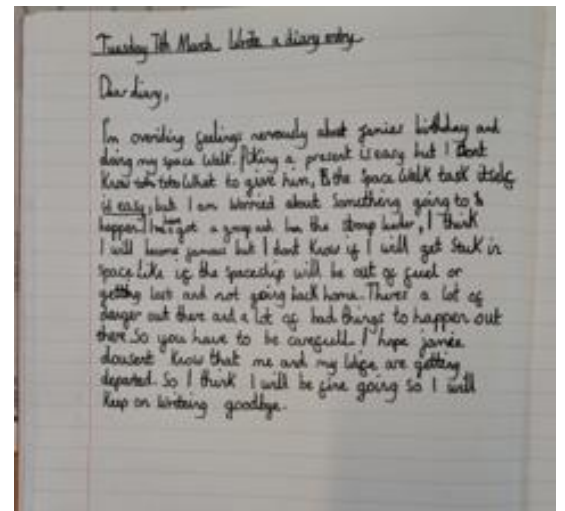 Tuesday 7th March Write a diary entry
Dear diary,
I'm overiding feelings nervously about jamies birthday and
doing my space walk. Piking a present is easy but I dont
Know What to give him, & the Space Walk task itself
is easy, but I am worried about Something going to
happen. I have got a group and Im the group leader, I think
I will become famous but I dont Know if I will get Stuck in
space like if the spaceship will be out of fuel or
getting lost and not going back home. Theres a lot of
danger out there and a lot of bad things to happen out
there. So you have to be carefull. I hope jamie
dousent Know that me and my Wife are getting
departed. So I think I will be fine going so I will
Keep on Writeing goodbye.